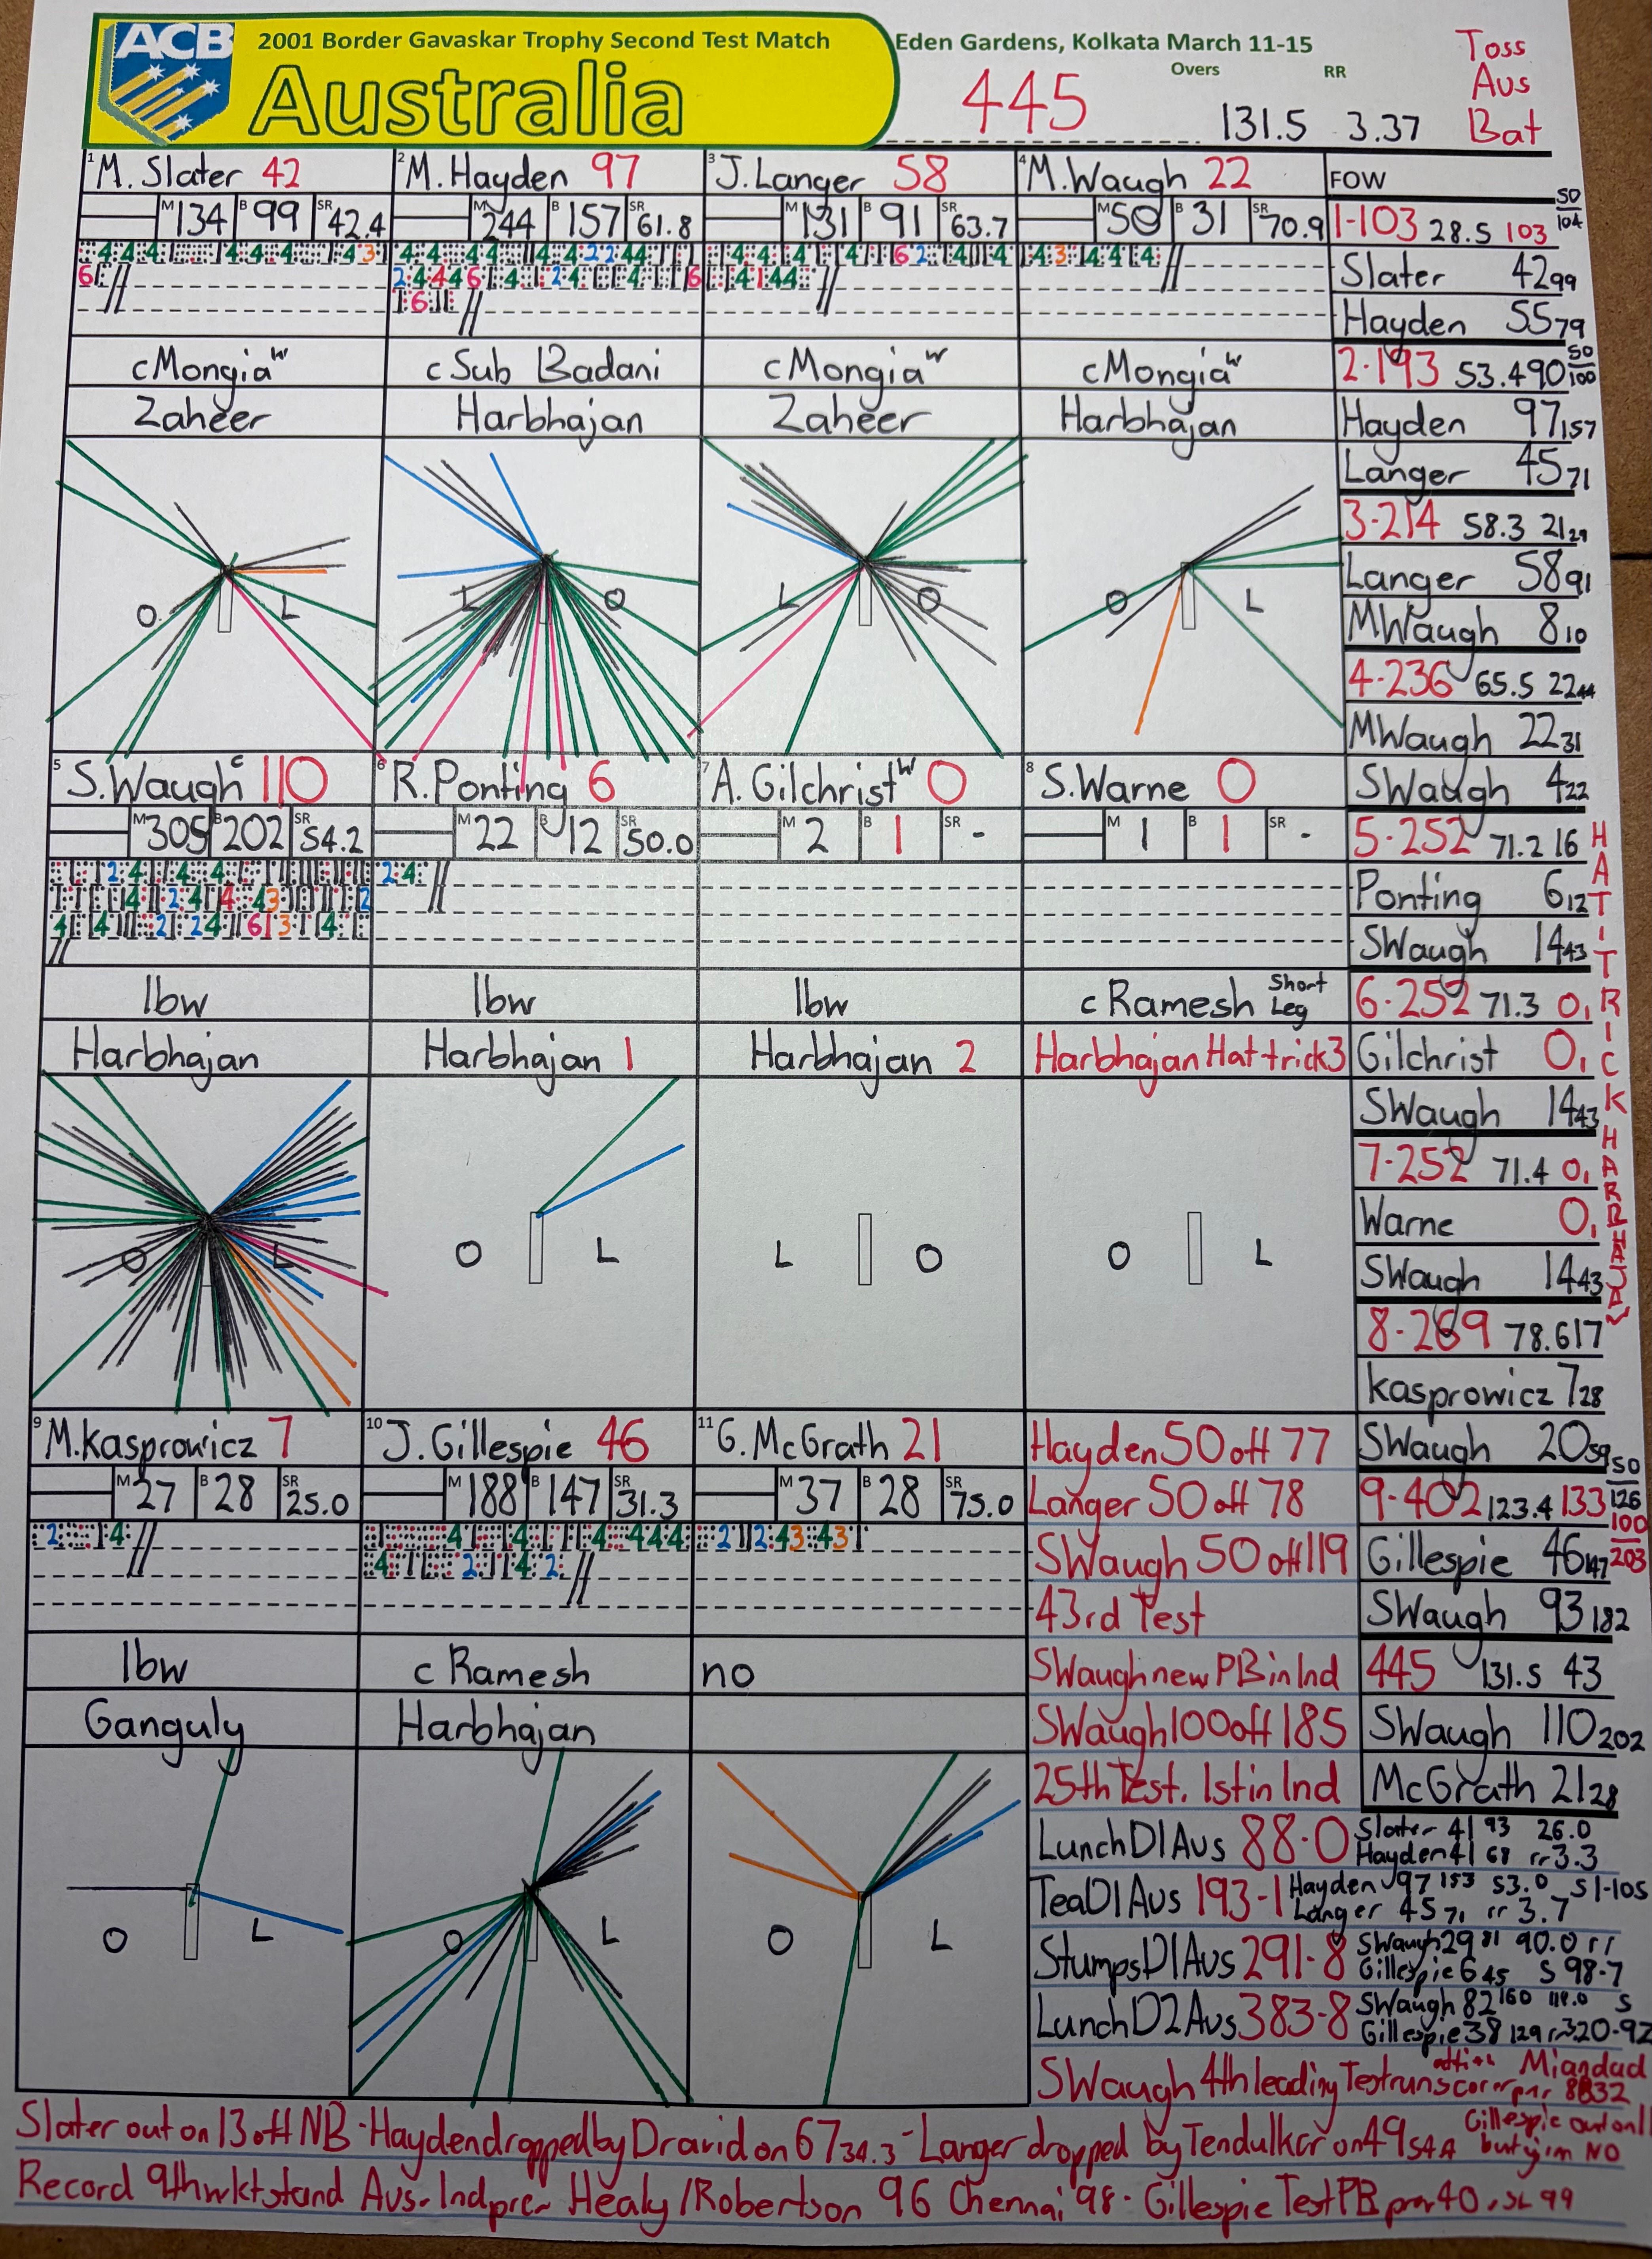 ACB
2001 Border Gavaskar Trophy Second Test Match
Australia
Eden Gardens, Kolkata March 11-15
Overs RR
445 131.5 3.37
Toss
Aus
Bat
1 M. Slater 42
M 134 B 99 SR 42.4
c Mongia w
Zaheer
O L
2 M. Hayden 97
M 244 B 157 SR 61.8
c Sub Badani
Harbhajan
L O
3 J. Langer 58
M 131 B 91 SR 63.7
c Mongia w
Zaheer
L O
4 M. Waugh 22
M 50 B 31 SR 70.9
c Mongia w
Harbhajan
O L
5 S. Waugh c 110
M 305 B 202 SR 54.2
lbw
Harbhajan
O L
6 R. Ponting 6
M 22 B 12 SR 50.0
lbw
Harbhajan 1
O L
7 A. Gilchrist W 0
M 2 B 1 SR -
lbw
Harbhajan 2
L O
8 S. Warne 0
M 1 B 1 SR -
c Ramesh Short Leg
Harbhajan Hat trick 3
O L
9 M. Kasprowicz 7
M 27 B 28 SR 25.0
lbw
Ganguly
O L
10 J. Gillespie 46
M 188 B 147 SR 31.3
c Ramesh
Harbhajan
O L
11 G. McGrath 21
M 37 B 28 SR 75.0
no
O L
FOW
1-103 28.5 103 50/104
Slater 42 99
Hayden 55 79
2-193 53.4 90 50/100
Hayden 97 157
Langer 45 71
3-214 58.3 21 29
Langer 58 91
MWaugh 8 10
4-236 65.5 22 44
MWaugh 22 31
SWaugh 4 22
5-252 71.2 16
Ponting 6 12
SWaugh 14 43
6-252 71.3 0 1
Gilchrist 0 1
SWaugh 14 43
7-252 71.4 0 1
Warne 0 1
SWaugh 14 43
8-269 78.6 17
Kasprowicz 7 28
SWaugh 20 59
9-402 123.4 133 50/126 100/203
Gillespie 46 147
SWaugh 93 182
445 131.5 43
SWaugh 110 202
McGrath 21 28
HAT TRICK HARBHAJAN
Hayden 50 off 77
Langer 50 off 78
SWaugh 50 off 119
43rd Test
SWaugh new PB in Ind
SWaugh 100 off 185
25th Test. 1st in Ind
Lunch D1 Aus 88-0 Slater 41 93 26.0
Hayden 41 68 rr 3.3
Tea D1 Aus 193-1 Hayden 97 153 53.0 S1-105
Langer 45 71 rr 3.7
Stumps D1 Aus 291-8 SWaugh 29 81 90.0 rr
Gillespie 6 45 S 98-7
Lunch D2 Aus 383-8 SWaugh 82 160 S
Gillespie 38 129
SWaugh 4th leading Test run scorer Miandad
8832
Slater out on 13 off NB - Hayden dropped by Dravid on 67 34.3 - Langer dropped by Tendulkar on 49
Gillespie out on 11 but given NO
Record 9th wkt stand Aus-Ind prev Healy/Robertson 96 Chennai '98 - Gillespie Test PB prev 40 v SL 99